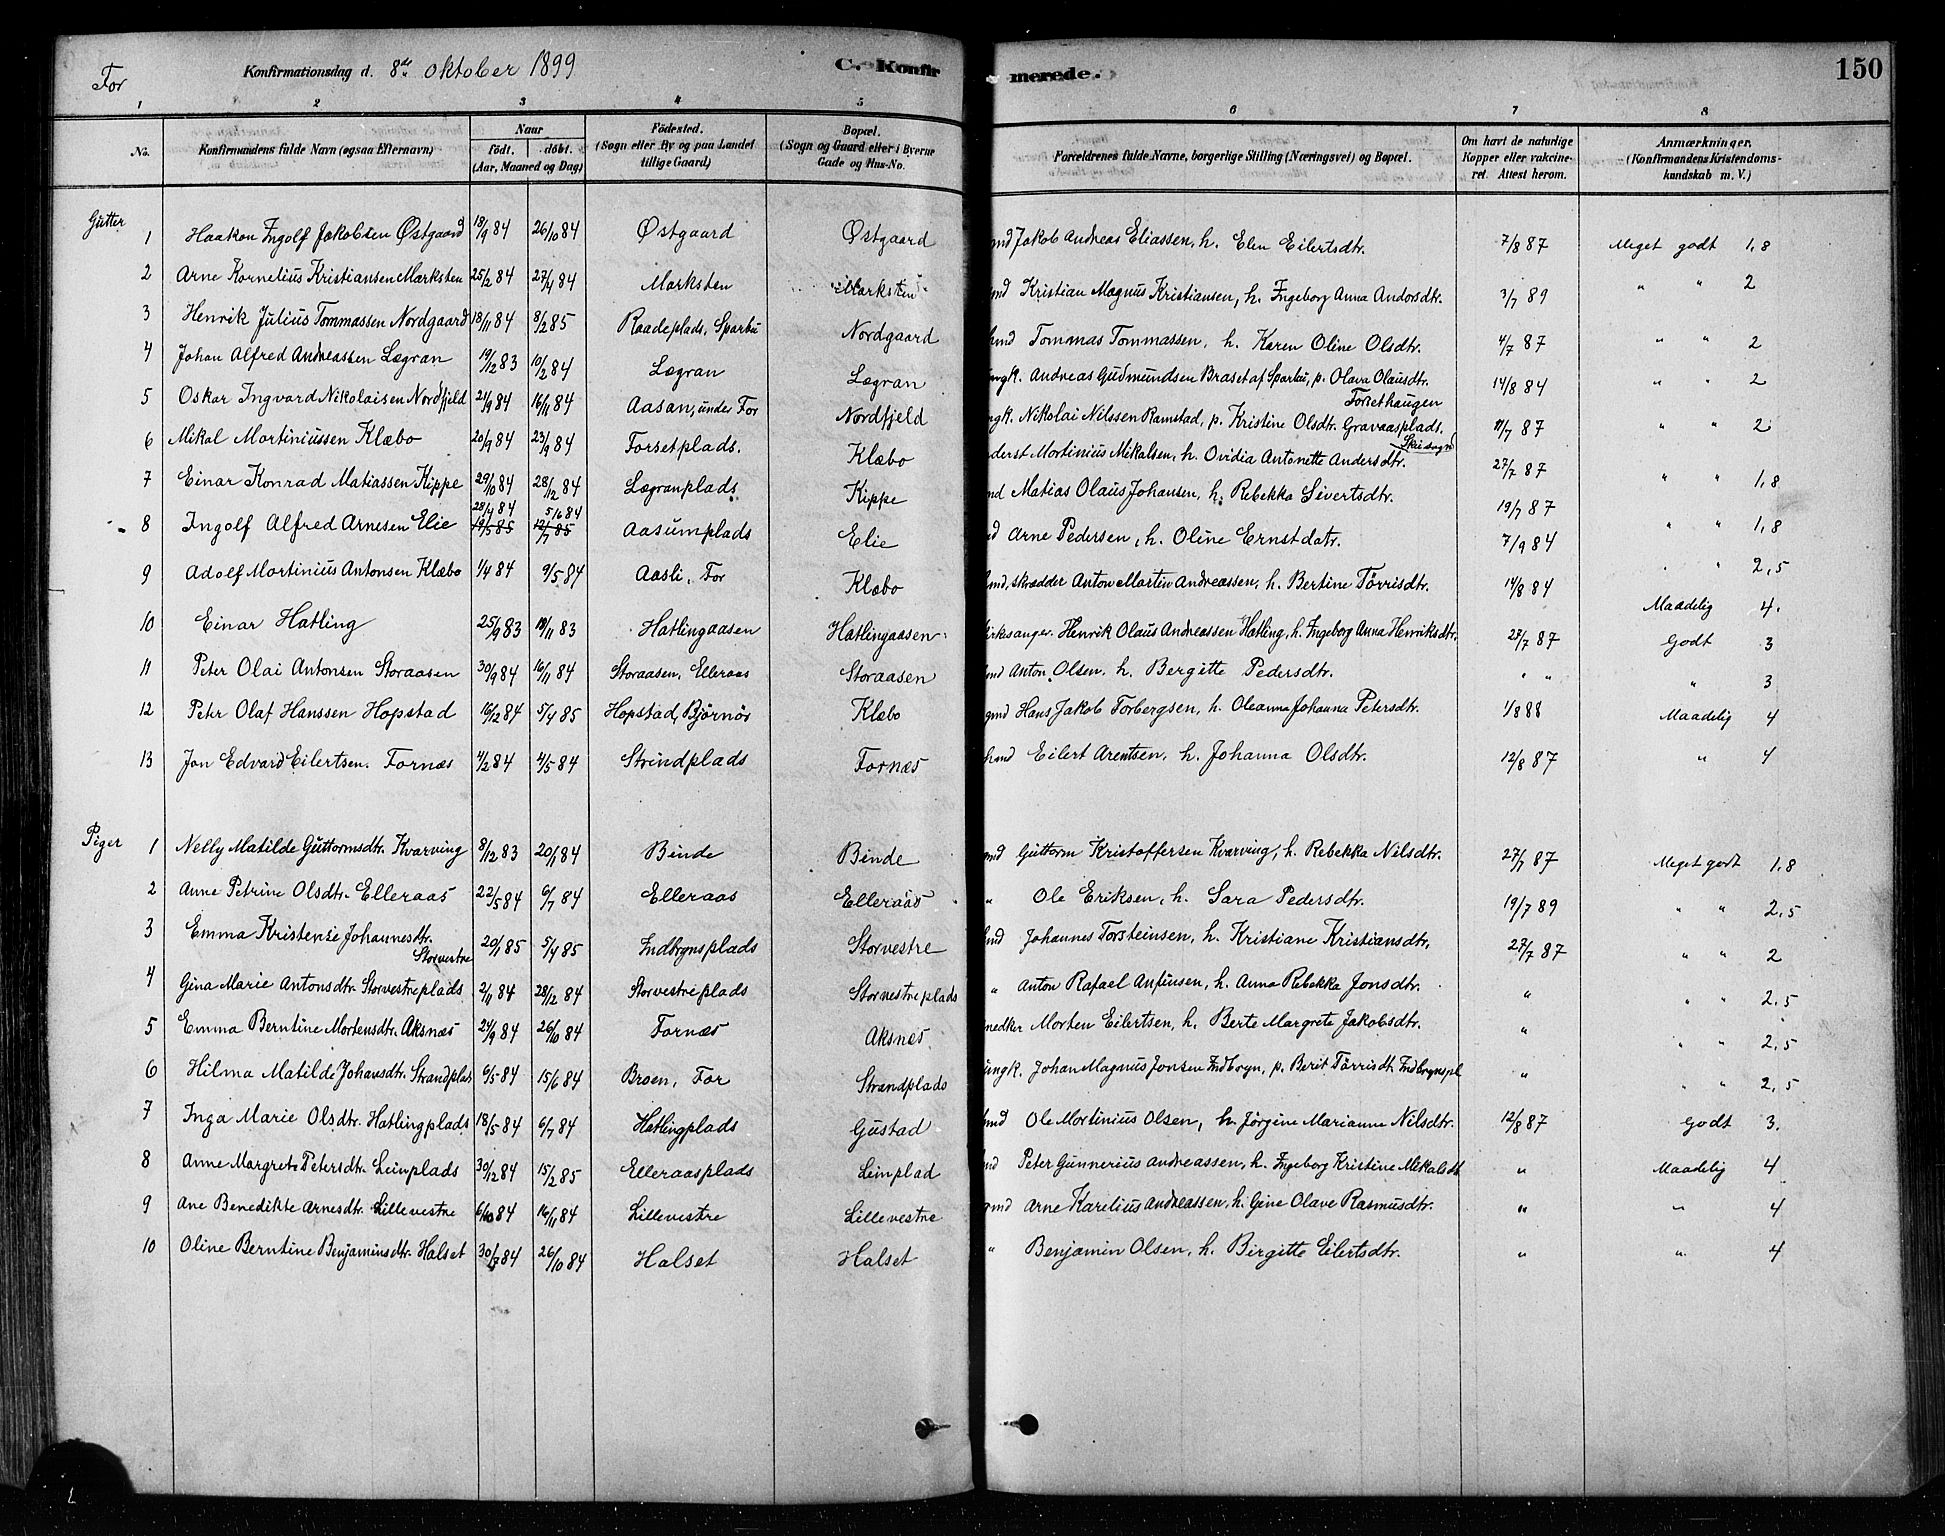 For Konfirmationsdag d. 8de Oktober 1899 C. Konfirmerede. 150
1 2 3 4 5 6 7 8
No. Konfirmandens fulde Navn (ogsaa Efternavn) Naar født. døbt. (Aar, Maaned og Dag) Fødested. (Sogn eller By og paa Landet tillige Gaard) Bopæl. (Sogn og Gaard eller i Byerne Gade og Hus-No. Forældrenes fulde Navne, borgerlige Stilling (Næringsvei) og Bopæl. Om havt de naturlige Kopper eller vakcineret. Attest herom. Anmærkninger. (Konfirmandens Kristendomskundskab m. V.)
Gutter
1 Haakon Ingolf Jakobsen Østgaard 18/9 84 26/10 84 Østgaard Østgaard Jakob Andreas Eliassen, h. Elen Eilertsdtr. 7/8 87 Meget godt 1,8
2 Arne Kornelius Kristiansen Marksten 25/2 84 27/4 84 Marksten Marksten Kristian Magnus Kristiansen, h. Ingeborg Anna Andorsdtr. 3/7 89 " " 2
3 Henrik Julius Tommassen Nordgaard 18/11 84 8/2 85 Raadeplads, Sparbu Nordgaard Tommas Tommassen, h. Karen Oline Olsdtr. 4/7 87 " " 2
4 Johan Alfred Andreassen Lægran 19/12 83 10/2 84 Lægran Lægran ungk. Andreas Gudmundsen Braset af Sparbu, p. Olava Olausdtr. Forsethaugen 14/8 84 " " 2
5 Oskar Ingvard Nikolaisen Nordfjeld 21/9 84 16/11 84 Aasan, under For Nordfjeld ngk. Nikolai Nilssen Ramstad, p. Kristine Olsdtr. Gravaasplads. Skei sogn 11/7 87 " " 2
6 Mikal Mortiniussen Klæbo 20/9 84 23/9 84 Forsetplads. Klæbo Mortinius Mikalsen, h. Ovidia Antonette Andersdtr. 27/7 87 " " 1,8
7 Einar Konrad Matiassen Kippe 29/10 84 28/12 84 Lægranplads Kippe Matias Olaus Johansen, h. Rebekka Sivertsdtr. 19/7 87 " " 1,8
8 Ingolf Alfred Arnesen Elie 28/4 84 19/5 85 5/6 84 12/7 85 Aasumplads Elie Arne Pedersen, h. Oline Ernstdatr. 7/9 84 " " 2,5
9 Adolf Mortinius Antonsen Klæbo 1/4 84 9/5 84 Aasli, For Klæbo skrædder Anton Martin Andreassen, h. Bertine Tørrisdtr. 14/8 84 Maadelig 4.
10 Einar Hatling 25/9 83 18/11 83 Hatlingaasen Hatlingaasen Kirksanger. Henrik Olaus Andreassen Hatling, h. Ingeborg Anna Henriksdtr. 23/7 87 Godt 3
11 Peter Olai Antonsen Storaasen 30/9 84 16/11 84 Storaasen, Elleraas Storaasen Anton Olsen, h. Bergitte Pedersdtr. " " " 3
12 Peter Olaf Hanssen Hopstad 16/12 84 5/4 85 Hopstad, Bjørnør Klæbo Hans Jakob Torbergsen, h. Oleanna Johanna Petersdtr. 1/8 88 Maadelig 4
13 Jon Edvard Eilertsen. Fornæs 4/2 84 4/5 84 Strindplads Fornæs Eilert Arentsen, h. Johanna Olsdtr. 12/8 87 " 4
Piger
1 Nelly Matilde Guttormsdtr. Kvarving 8/12 83 20/1 84 Binde Binde Guttorm Kristoffersen Kvarving, h. Rebekka Nilsdtr. 27/7 87 Meget godt 1,8
2 Anne Petrine Olsdtr. Elleraas 22/5 84 6/7 84 Elleraas Elleraas " Ole Eriksen, h. Sara Pedersdtr. 19/7 89 " " 2,5
3 Emma Kristense Johannesdtr. Storvestre 20/1 85 5/4 85 Indbrynsplads Storvestre Johannes Torsteinsen, h. Kristiane Kristiansdtr. 27/7 87 " " 2
4 Gina Marie Antonsdtr. Storvestreplads 2/11 84 28/12 84 Storvestreplads Storvestreplads " Anton Rafael Anfinsen, h. Anna Rebekka Jonsdtr. " " " 2,5
5 Emma Berntine Mortensdtr. Aksnæs 24/9 84 26/10 84 Fornæs Aksnæs. Morten Eilertsen, h. Berte Margrete Jakobsdtr. " " " 2,5
6 Hilma Matilde Johansdtr. Strandplads 6/5 84 15/6 84 Broen, For Strandplads ungk. Johan Magnus Jonsen Indbryn, p. Berit Tørrisdt. Indbrynspl " " " 2,5
7 Inga Marie Olsdtr. Hatlingplads 18/5 84 6/7 84 Hatlingplads Gustad Ole Mortinius Olsen, h. Jørgine Marianne Nilsdtr. 12/8 87 Godt 3.
8 Anne Margrete Petersdtr. Leinplads 30/12 84 15/2 85 Elleraasplads Leinplad Peter Gunnerius Andreassen, h. Ingeborg Kristine Mikalsdt " Maadelig 4
9 Ane Benedikte Arnesdtr. Lillevestre 6/10 84 16/11 84 Lillevestre Lillevestre Arne Karelius Andreassen, h. Gine Olave Rasmusdtr. " " 4
10 Oline Berntine Benjaminsdtr. Halset 30/7 84 26/10 84 Halset Halset " Benjamin Olsen, h. Birgitte Eilertsdtr. " " 4